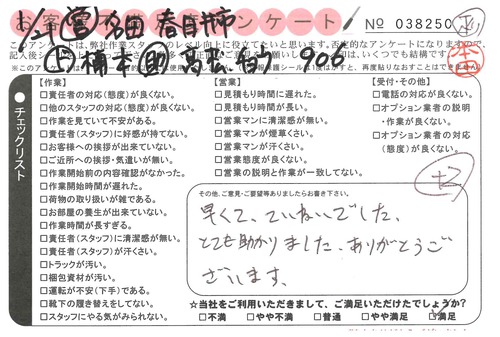 お客様アンケート
No 038250
1/21 営 多田 春日井市
このアンケートは、弊社作業スタッフのレベル向上に役立てたいと思います。否定的なアンケートになりますので、
上 楠本 助 髙松 906
チェックリスト
【作業】
□責任者(態度)が良くない。
□他のスタッフの対応(態度)が良くない。
□作業を見ていて不安がある。
□責任者(スタッフ)に好感が持てない。
□お客様への挨拶が出来ていない。
□ご近所への挨拶・気遣いが無い。
□作業開始前の内容確認がなかった。
□作業開始時間が遅れた。
□荷物の取り扱いが雑である。
□お部屋の養生が出来ていない。
□作業時間が長すぎる。
□責任者(スタッフ)に清潔感が無い。
□責任者(スタッフ)が汗くさい。
□トラックが汚い。
□梱包資材が汚い。
□運転が不安(下手)である。
□靴下の履き替えをしてない。
□スタッフにやる気がみられない。
【営業】
□見積もり時間に遅れた。
□見積もり時間が長い。
□営業マンに清潔感が無い。
□営業マンが煙草くさい。
□営業マンが汗くさい。
□営業態度が良くない。
□営業の説明と作業が一致してない。
【受付・その他】
□電話の対応が良くない。
□オプション業者の説明
・作業が良くない。
□オプション業者の対応
(態度)が良くない。
+2
その他、ご意見・ご要望等ありましたらお書き下さい。
早くて、ていねいでした、
とても助かりました、ありがとうご
ざいます。
☆当社をご利用いただきまして、ご満足いただけたでしょうか?
□不満 □やや不満 □普通 □やや満足 □満足